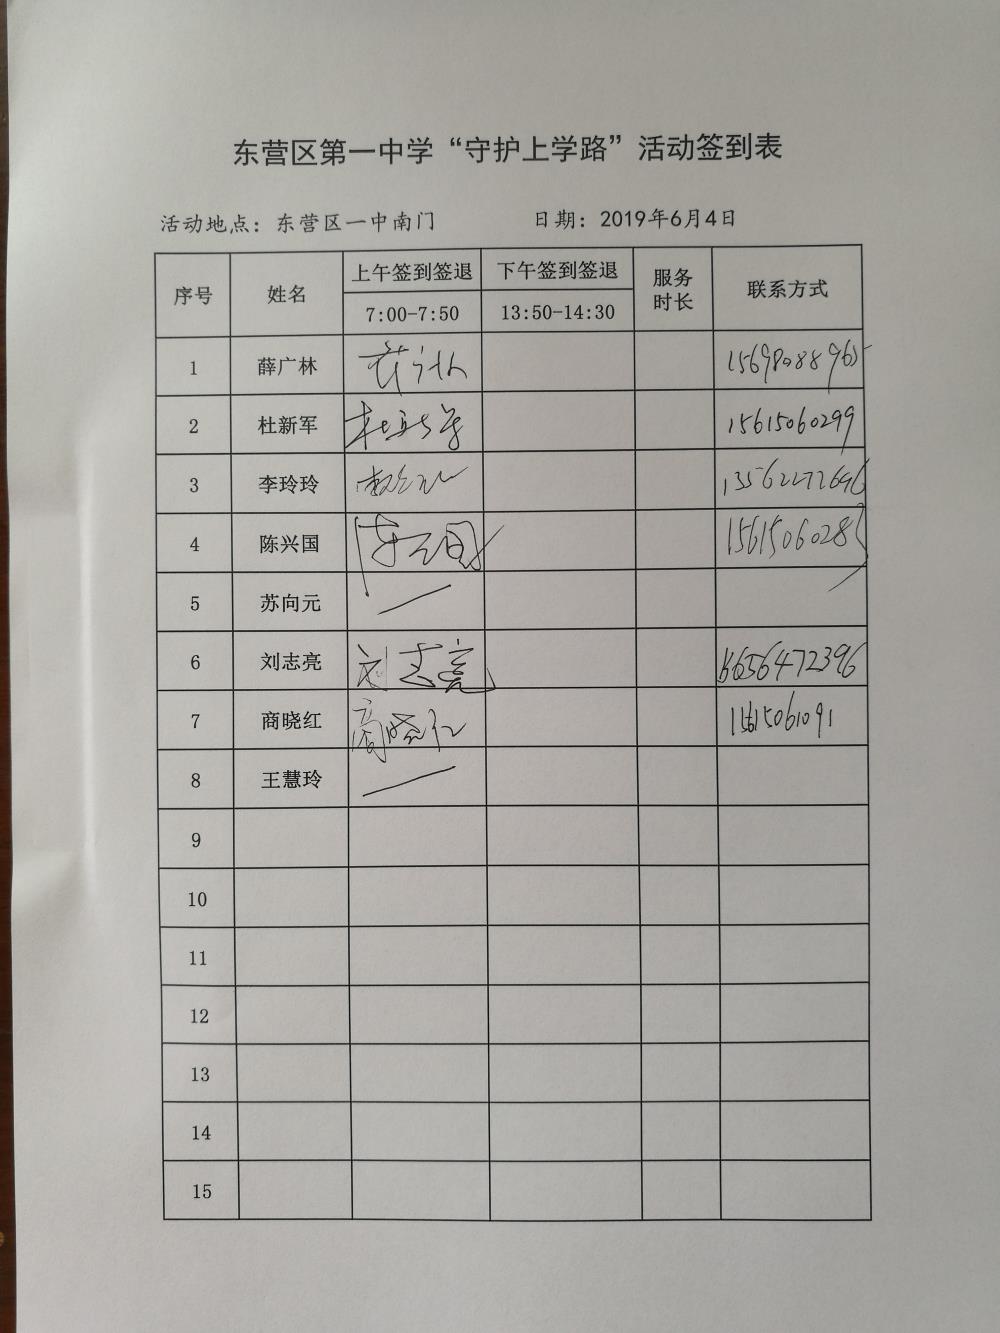 东营区第一中学“守护上学路”活动签到表
活动地点：东营区一中南门 日期：2019年6月4日
序号 姓名 上午签到签退 下午签到签退 服务时长 联系方式
7:00-7:50 13:50-14:30
1 薛广林 15698088965
2 杜新军 杜新军 15615060299
3 李玲玲 13562272696
4 陈兴国 陈兴国 15615060283
5 苏向元 —
6 刘志亮 刘志亮 18656472396
7 商晓红 商晓红 15615061091
8 王慧玲 —
9
10
11
12
13
14
15